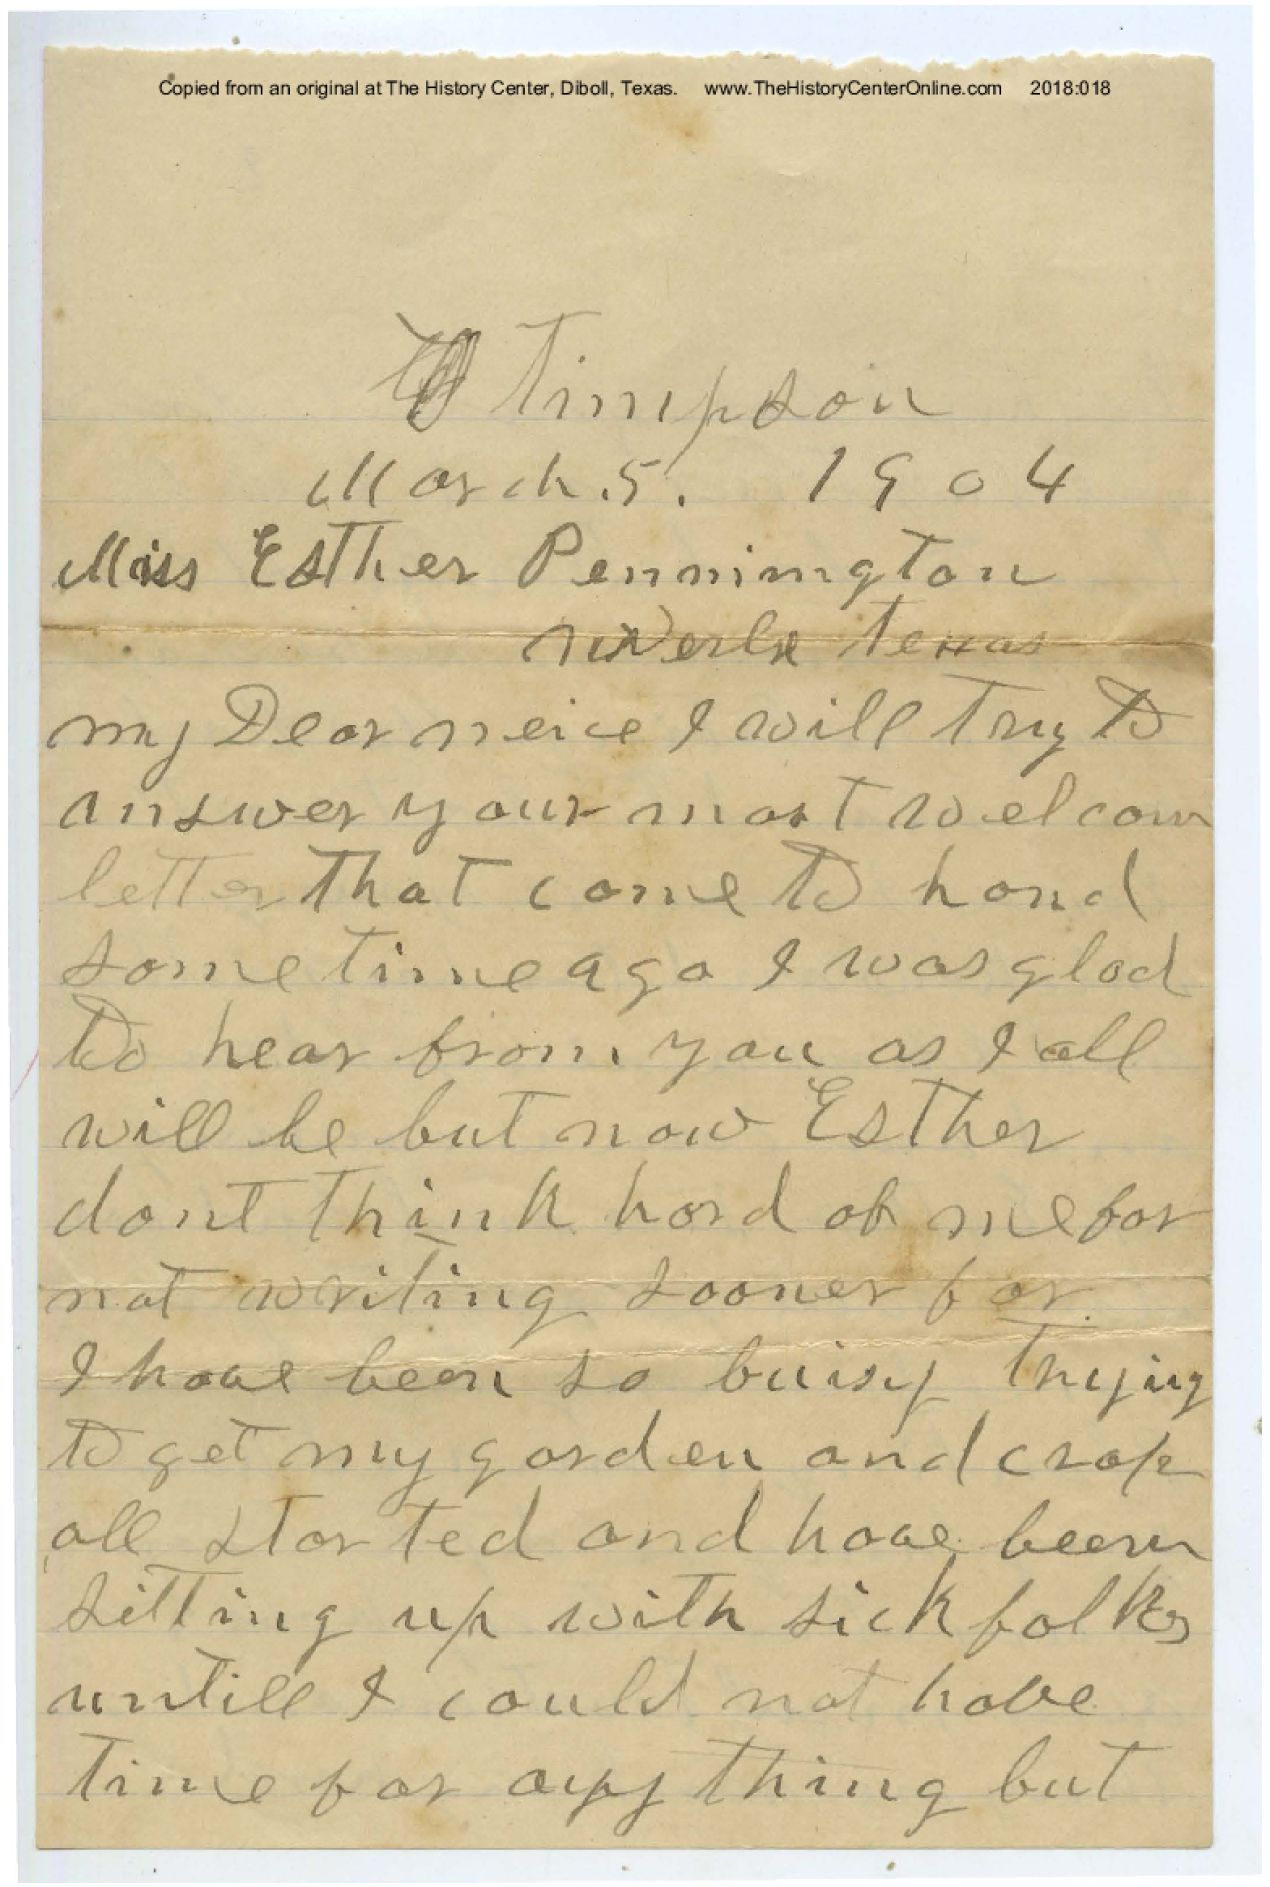 Copied from an original at The History Center, Diboll, Texas. www.TheHistoryCenterOnline.com 2018:018
Timpson
March.5. 1904
Miss Esther Pennington
Texas
my Dear neice I will Try to
answer your most welcom
letter That come to hand
some time ago I was glad
To hear from you as I all
will be but now Esther
dont Think hard of me for
not writing sooner for
I have been so buisy Trying
to get my garden and crop
all started and have been
sitting up with sick folks
untill I could not have
Time for any Thing but